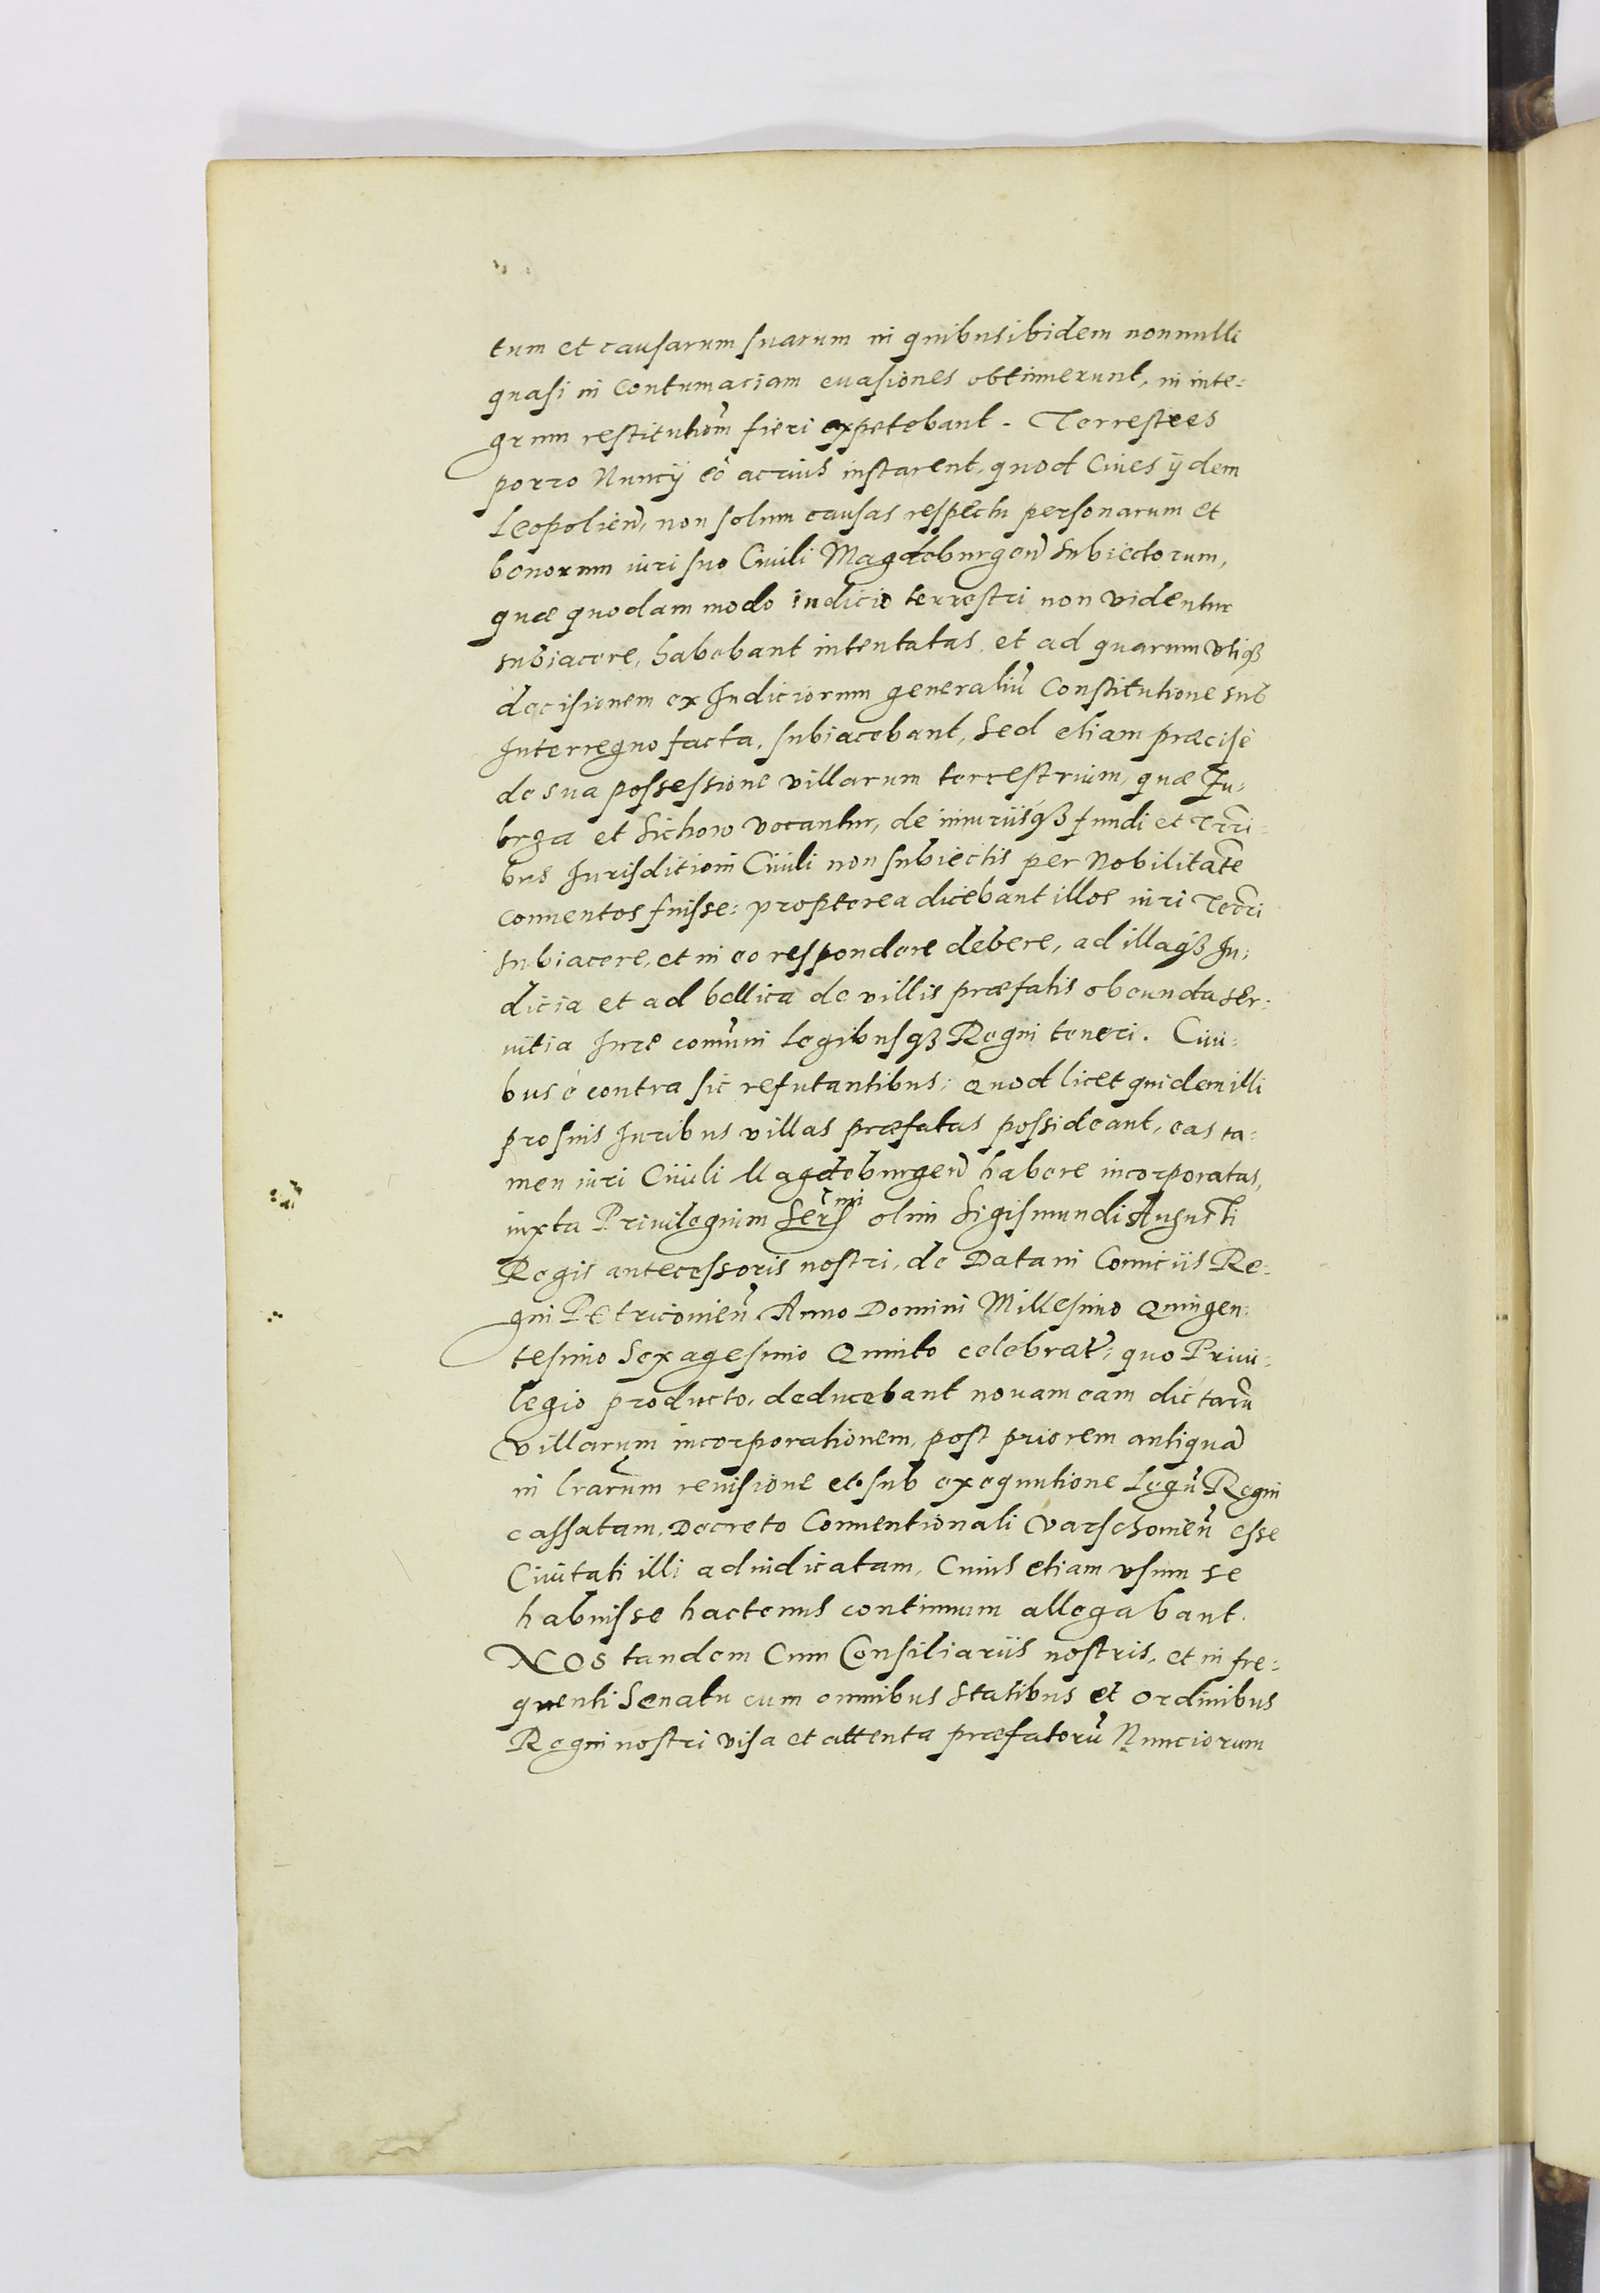 tum et causarum suarum in quibus ibidem nonnulli
quasi in contumaciam euasiones obtinuerunt, in inte:
grum restitutiom̃ fieri expetebant. Terrestres
porro Nuncij eò acrius instarent, quod Ciues ijdem
Leopolien̄, non solum causas respectu personarum et
bonorum iuri suo Ciuili Magdeburgen̄ subiectorum,
quæ quodammodo iudicio terrestri non videntur
subiacere, habebant intentatas, et ad quarum vtiqȝ
decisionem ex Iudiciorum generaliũ Constitutione sub
Interregno facta, subiacebant, sed etiam præcisè
de sua possessione villarum terrestrium, quæ Zu:
brza et Sichow vocantur, de iniuriisqȝ fundi et Trri:
bus Iurisditioni Ciuili non subiectis per Nobilitatē
conuentos fuisse: propterea dicebant illos iuri Terri
subiacere, et in eo respondere debere, ad illaqȝ Iu:
dicia et ad bellica de villis præfatis obeunda ser:
uitia Iure com̃uni Legibusqȝ Regni teneri. Ciui:
bus è contra sic refutantibus: Quod licet quidem illi
pro suis Iuribus villas præfatas possideant, eas ta:
men iuri Ciuili Magdeburgen̄ habere incorporatas,
iuxta Priuilegium Ser̃mi olim Sigismundi Augusti
Regis antecessoris nostri, de Data in Comiciis Re:
gni Petricouien̄ Anno Domini Millesimo Quingen:
tesimo Sexagesimo Quinto celebrat̃: quo Priui:
legio producto, deducebant nouam eam dictarũ
villarum incorporationem, post priorem antiquã
in lrar̃um reuisione et sub exequutione Legũ Regni
cassatam, Decreto Conuentionali Varschouien̄ esse
Ciuitati illi adiudicatam, Cuius etiam vsum se
habuisse hactenus continuum allegabant.
NOS tandem Cum Consiliariis nostris, et in fre:
quenti Senatu cum omnibus Statibus et Ordinibus
Regni nostri visa et attenta præfatorũ Nunciorum